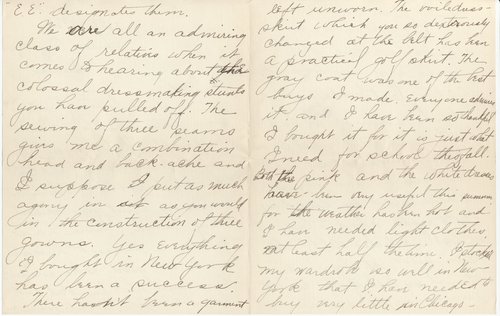 E E. designates them.
We are all an admiring
class of relatives when it
comes to hearing about the
colossal dressmaking stunts
you have pulled off. The
sewing of three seams
gives me a combination
head and back-ache and
I suppose I put as much
agony in it as you would
in the construction of three
gowns. Yes everything
I bought in New York
has been a success.
There hasn't been a garment
left unworn. The
skirt which you so dexterously
changed at the belt has been
a practical golf skirt. The
gray coat was one of the best
buys I made. Everyone admires
it, and I have been so thankful
I bought it for it is just what
I need for school this fall.
Both the pink and the white dresses
have been very useful this summer
for the weather has been hot and
I have needed light clothes,
at least half the time. I stocked
my wardrobe so well in New
York that I have needed to
buy very little in Chicago -